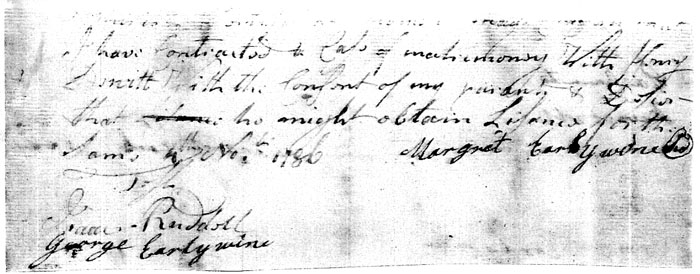 I have Contracted a Cas of matrimoney With Henry
Dewitt With the Consent of my parants & Desior
that he might obtain Lisance for the
Same 4th Novbr 1786 Margret Earlywine
Test
Isaac Ruddell
George Earlywine